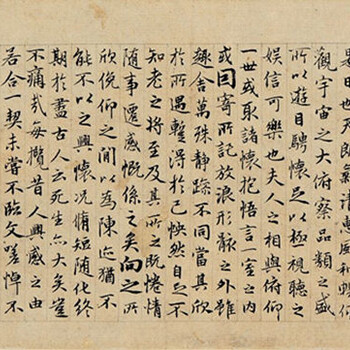 是日也天朗氣清惠風和暢仰
觀宇宙之大俯察品類之盛
所以遊目騁懷足以極視聽之
娛信可樂也夫人之相與俯仰
一世或取諸懷抱悟言一室之內
或因寄所託放浪形骸之外雖
趣舍萬殊靜躁不同當其欣
於所遇暫得於己怏然自足不
知老之將至及其所之既惓情
隨事遷感慨係之矣向之所
欣俛仰之間以為陳迹猶不
能不以之興懷況脩短隨化終
期於盡古人云死生亦大矣豈
不痛哉每攬昔人興感之由
若合一契未嘗不臨文嗟悼不